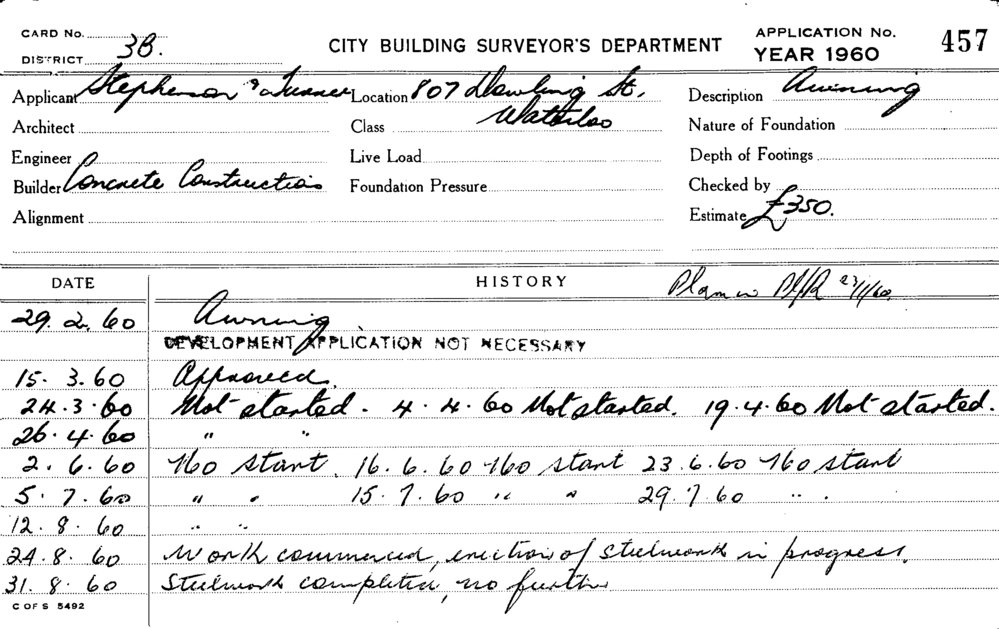 CARD No.
DISTRICT 3B.
CITY BUILDING SURVEYOR'S DEPARTMENT
APPLICATION No. 457
YEAR 1960
Applicant Stephenson & Turner Location 807 Dowling St. Description Awning
Waterloo
Architect Class Nature of Foundation
Engineer Live Load Depth of Footings
Builder Concrete Constructions Foundation Pressure Checked by
Alignment Estimate £350.
DATE HISTORY Plan in 23/11/60.
29. 2. 60 Awning
DEVELOPMENT APPLICATION NOT NECESSARY
15. 3. 60 Approved.
24. 3. 60 Not started. 4. 4. 60 Not started. 19. 4. 60 Not started.
26. 4. 60 " "
2. 6. 60 No start. 16. 6. 60 No start 23. 6. 60 No start
5. 7. 60 " " 15. 7. 60 " " 29. 7. 60 " "
12. 8. 60 " "
24. 8. 60 Work commenced, erection of steelwork in progress.
31. 8. 60 Steelwork completed, no further
C OF S 5492